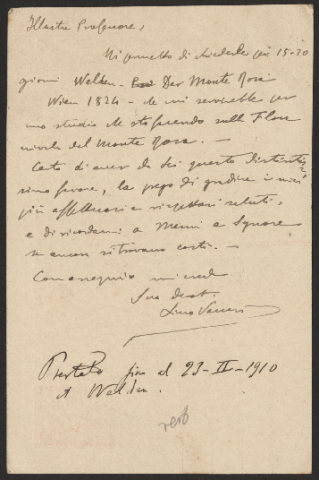 Illustre Professore,
Mi permetto di chiederle per 15-20
giorni Welden - Der Monte Rosa
Wien 1824 - che mi servirebbe per
uno studio che sto facendo sulla Flora
nivale del Monte Rosa. -
Certo di aver da Lei questo distintis-
simo favore, la prego di gradire i miei
più affettuosi e rispettosi saluti,
e di ricordarmi a Menni e Signore
se ancora si trovano costì. -
Con ossequio mi creda
Suo devot.
Lino Vaccari
Prestato fino al 23-II-1910
il Welden.